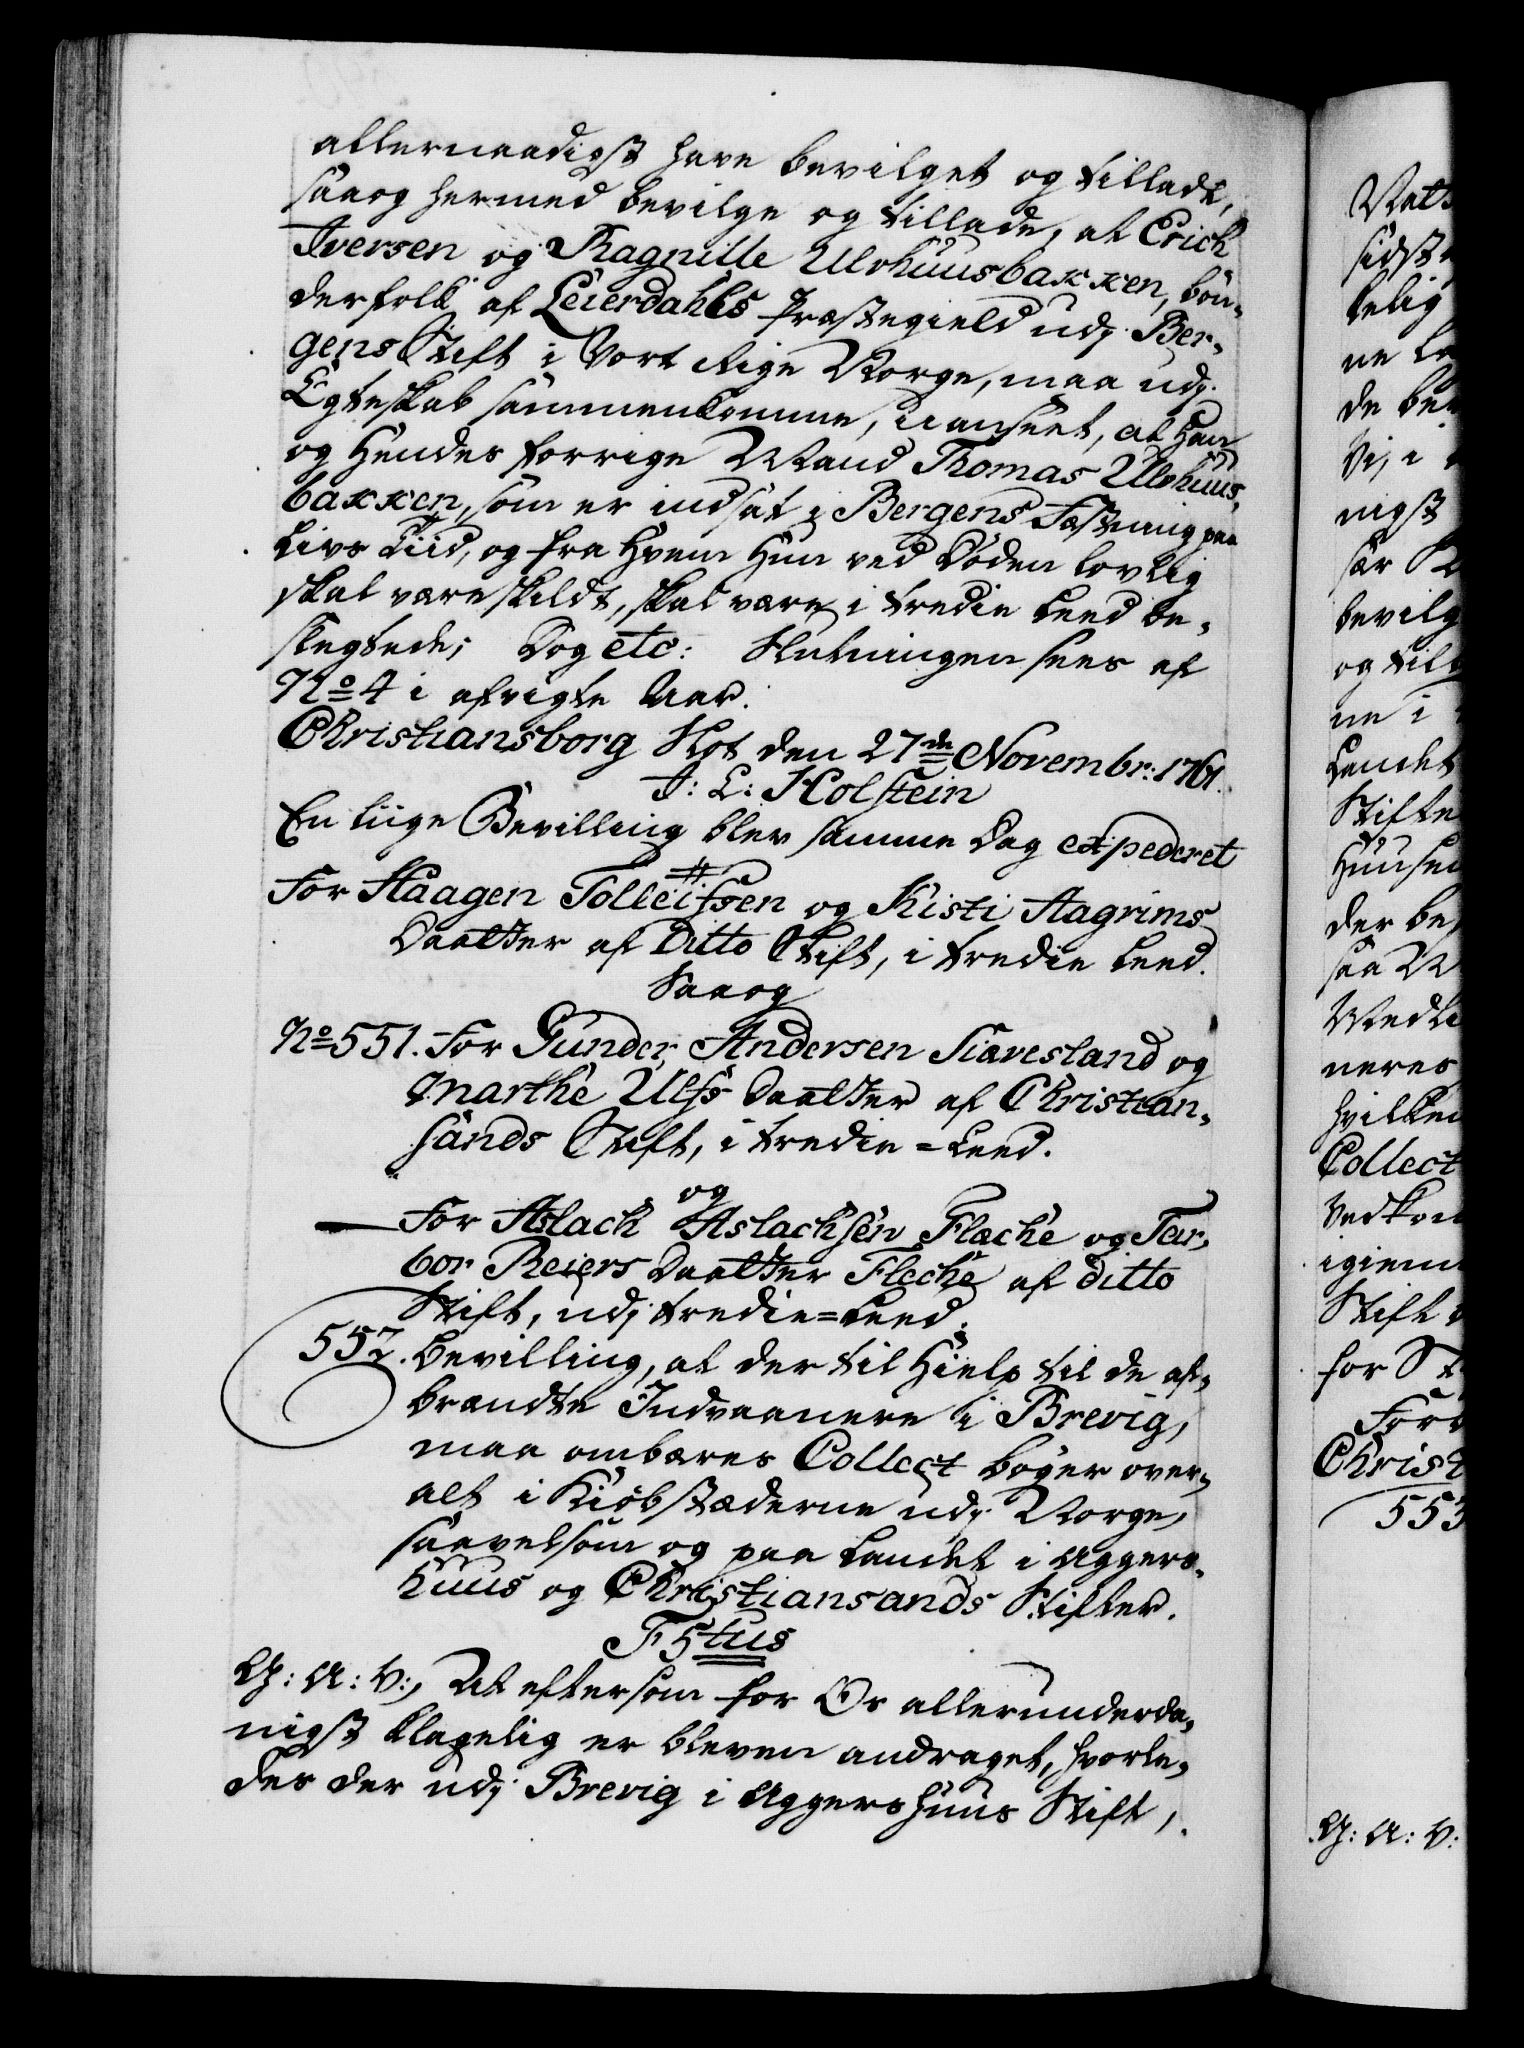 allernaadigst have bevilget og tilladt,
saa og hermed bevilge og tillade, at Erich
Iversen og Ragnille Ulvhuusbakken, bøn-
derfolk af Leierdahls Præstegield udj Ber-
gens Stift i Vort Rige Norge, maa udj
Egteskab sammenkomme, uanseet, at Han
og Hendes forrige Mand Thomas Ulvhuus-
bakken, som er indsat i Bergens Fæstning paa
Livs Tiid, og fra Hvem Hun ved Døden lovlig
skal være skildt, skal være i tredie Leed be-
slegtede; Dog etc: Slutningen sees af
No 4 i afvigte Aar.
Christiansborg Slot den 27de Novembr: 1761.
J: L: Holstein
En liige Bevilling blev samme Dag expederet
For Haagen Tolleifsen og Kisti Aagrims
Daatter af Ditto Stift, i tredie Leed.
Saa og
No 551. For Gunder Andersen Siavesland og
Marthe Ulfs Daatter af Christian-
sands Stift, i tredie=Leed.
og
For Aslach Aslachsen Flache og Tar-
bor Reiers Daatter Fleche af ditto
Stift, udj tredie=Leed.
552. Bevilling, at der til Hielp til de af-
brændte Indvaanere i Brevig,
maa ombæres Collect bøger over-
alt i Kiøbstæderne udj Norge,
saavelsom og paa Landet i Aggers-
huus og Christiansands Stifter.
F 5tus
G: A: V:, At eftersom for Os allerunderda-
nigst klagelig er bleven andraget, hvorle-
des der udj Brevig i Aggershuus Stift,